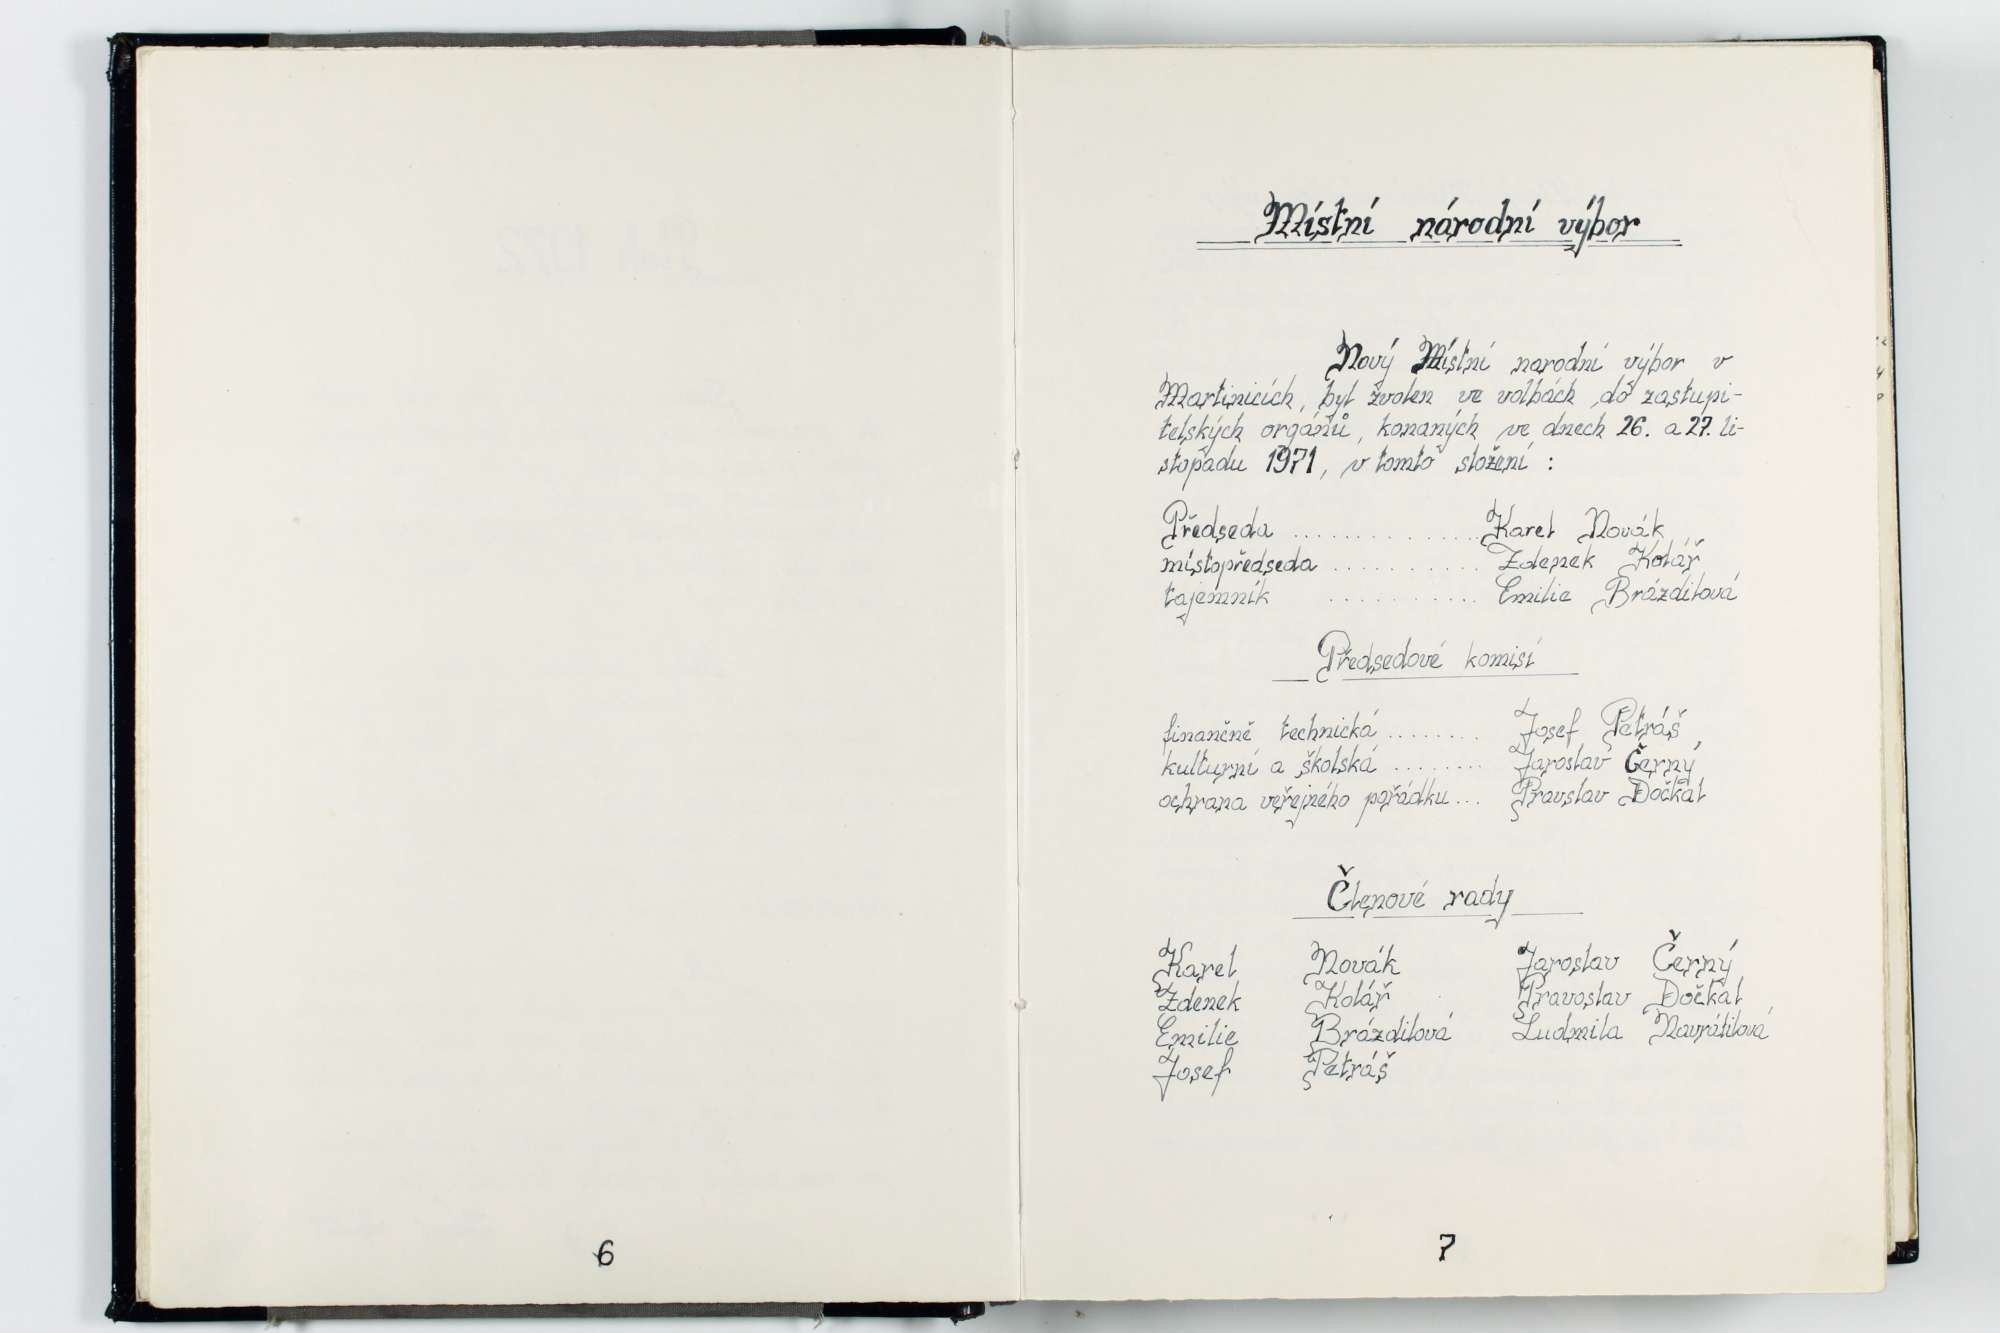 Místní národní výbor
Nový Místní narodní výbor v
Martinicích, byl zvolen ve volbách do zastupi-
telských orgánů, konaných ve dnech 26. a 27. li-
stopadu 1971, v tomto složení :
Předseda .............. Karel Novák
místopředseda ........... Zdenek Kolář
tajemník ........... Emilie Brázdilová
Předsedové komisí
finančně technická ........ Josef Petráš
kulturní a školská ........ Jaroslav Černý
ochrana veřejného pořádku ... Pravslav Dočkal
Členové rady
Karel Novák Jaroslav Černý
Zdenek Kolář Pravoslav Dočkal
Emilie Brázdilová Ludmila Navrátilová
Josef Petráš
6
7